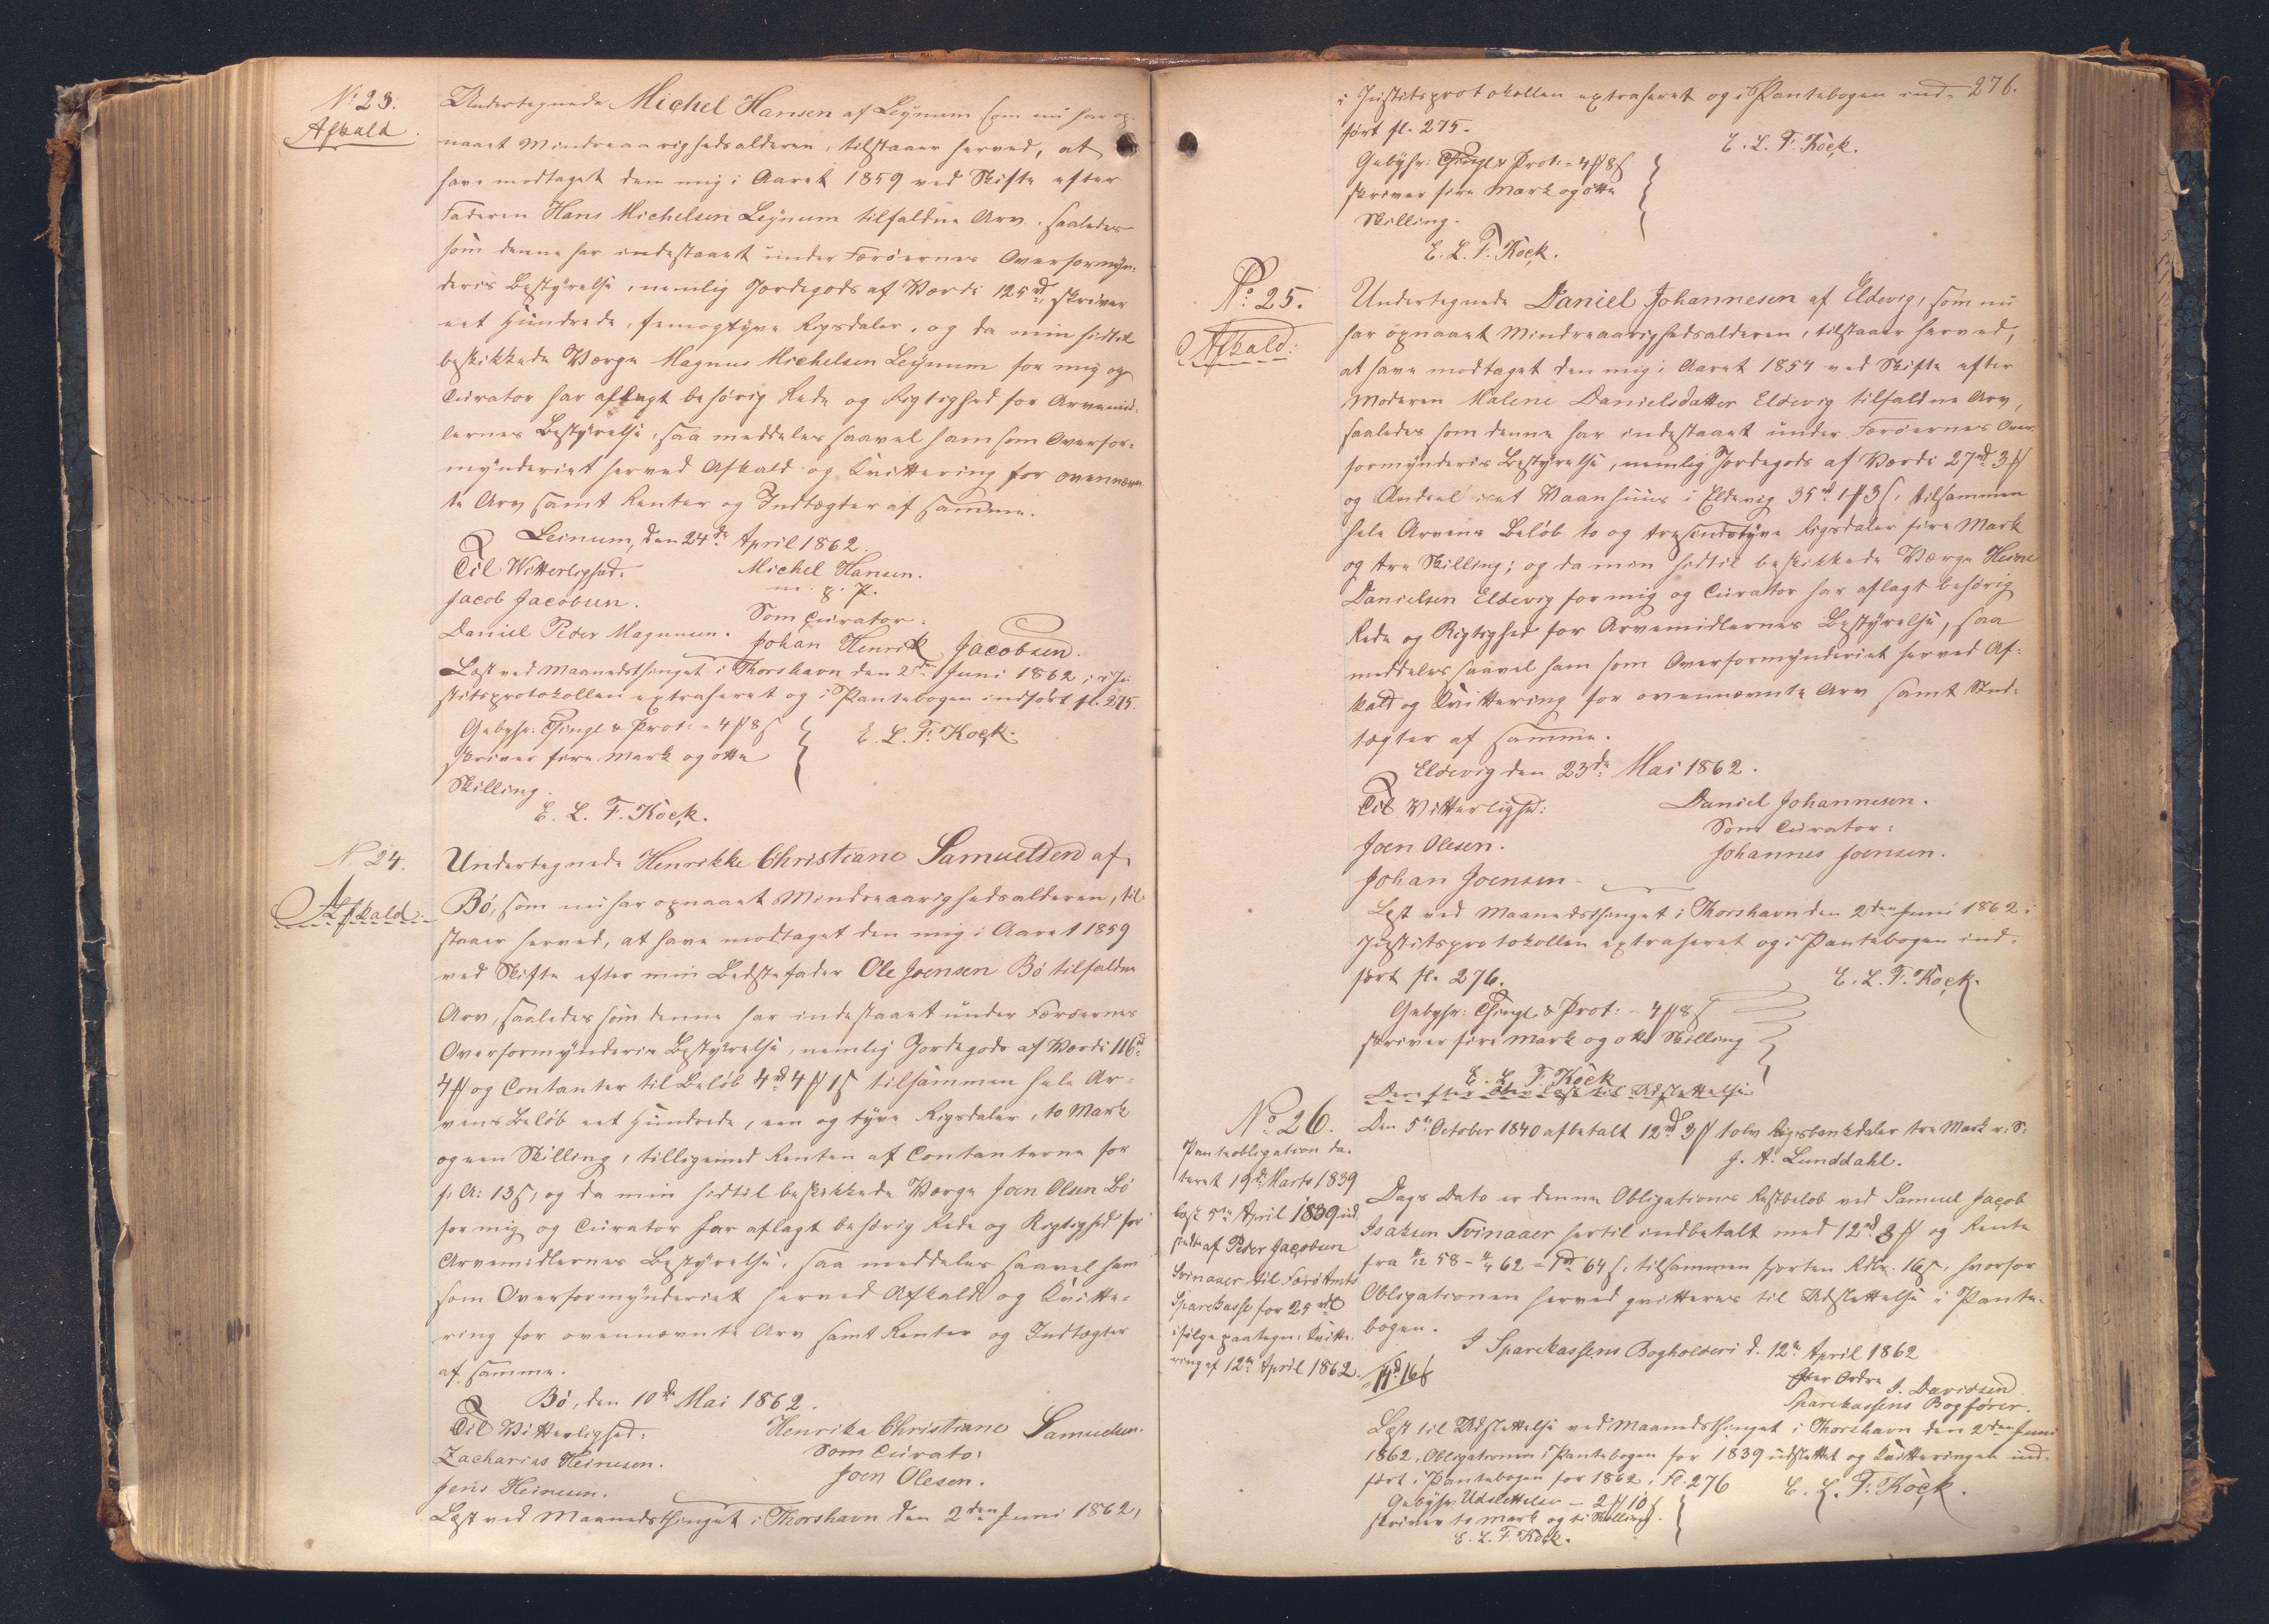 No 23.
Afkald.
Undertegnede Michel Hansen af Leynum som nu har op-
naaet Mindreaarighedsalderen, tilstaaer herved, at
have modtaget den mig i Aaret 1859 ved Skifte efter
Faderen Hans Michelsen Leynum tilfaldne Arv, saaledes
som denne har indestaaet under Færøernes Overformyn-
deris Bestyrelse, nemlig Jordegods af Værdi 125 rd, skriver
eet Hundrede, femogtyve Rigsdaler, og da min hidtil
beskikkede Værge Magnus Michelsen Leynum for mig og
Curator har aflagt behørig Rede og Rigtighed for Arvemid-
lernes Bestyrelse, saa meddeles saavel ham som Overfor-
mynderiet herved Afkald og Kvittering for ovennævn-
te Arv samt Renter og Indtægter af samme.
Leinum, den 24de April 1862.
Til Vitterlighed: Michel Hansen.
m. g. P.
Jacob Jacobsen. Som Curator:
Daniel Peder Magnusen. Johan Henrik Jacobsen.
Læst ved Maanedsthinget i Thorshavn den 2den Juni 1862, i Ju-
stitsprotokollen extraheret og i Pantebogen indført fl. 275.
Gebyhr: Thingl & Prot: - 4 ℳ 8 ß
skriver fire Mark og otte
Skilling.
E. L. F. Kock.
E. L. F. Kock.
No 24.
Afkald.
Undertegnede Henrikke Christiane Samuelsen af
Bø, som nu har opnaaet Mindreaarighedsalderen, til-
staaer herved, at have modtaget den mig i Aaret 1859
ved Skifte efter min Bedstefader Ole Joensen Bø tilfaldne
Arv, saaledes som denne har indestaaet under Færøernes
Overformynderis Bestyrelse, nemlig Jordegods af Værdi 116 rd
4 ℳ og Contanter til Beløb 4 rd 4 ℳ 1 ß tilsammen hele Ar-
vens Beløb eet Hundrede, een og tyve Rigsdaler, to Mark
og een Skilling, tilligemed Renten af Contanterne for
f. A: 13 ß, og da min hidtil beskikkede Værge Joen Olsen Bø
for mig og Curator har aflagt behørig Rede og Rigtighed for
Arvemidlernes Bestyrelse, saa meddeles saavel ham
som Overformynderiet herved Afkald og Kvitte-
ring for ovennævnte Arv samt Renter og Indtægter
af samme.
Bø, den 10de Mai 1862.
Til Vitterlighed: Henrike Christiane Samuelsen.
Zacharias Heinesen. Som Curator:
Jens Heinesen. Joen Olesen.
Læst ved Maanedsthinget i Thorshavn den 2den Juni 1862,
276.
i Justitsprotokollen extraheret og i Pantebogen ind-
ført fl. 275.
E. L. F. Kock.
Gebyhr: Thingl & Prot: - 4 ℳ 8 ß
skriver fire Mark og otte
Skilling.
E. L. F. Kock.
No 25.
Afkald:
Undertegnede Daniel Johannesen af Eldevig, som nu
har opnaaet Mindreaarighedsalderen, tilstaaer herved,
at have modtaget den mig i Aaret 1854 ved Skifte efter
Moderen Malene Danielsdatter Eldevig tilfaldne Arv,
saaledes som denne har indestaaet under Færøernes Over-
formynderis Bestyrelse, nemlig Jordegods af Værdi 27 rd 3 ℳ
og Andeel i et Vaanhuus i Eldevig 35 rd 1 ℳ 3 ß, tilsammen
hele Arvens Beløb to og tresindstyve Rigsdaler fire Mark
og tre Skilling; og da min hidtil beskikkede Værge Heine
Danielsen Eldevig for mig og Curator har aflagt behørig
Rede og Rigtighed for Arvemidlernes Bestyrelse, saa
meddeles saavel ham som Overformynderiet herved Af-
kald og Kvittering for ovennævnte Arv samt Ind-
tægter af samme.
Eldevig den 23de Mai 1862.
Til Vitterlighed: Daniel Johannesen.
Som Curator:
Joen Olesen. Johannes Joensen.
Johan Joensen
Læst ved Maanedsthinget i Thorshavn den 2den Juni 1862 i
Justitsprotokollen extraheret og i Pantebogen ind-
ført fl. 276.
E. L. F. Kock.
Gebyhr: Thingl & Prot: - 4 ℳ 8 ß
skriver fire Mark og otte Skilling
E. L. F. Kock
Derefter blev læst til Udslettelse
No 26.
Panteobligation da-
teret 19de Marts 1839
læst 5te April 1839 ud-
stedt af Peder Jacobsen
Svinaaer til Færø Amts
Sparekasse for 25 rd
ifølge paategn: Kvitte-
ring af 12te April 1862.
Den 5te October 1840 afbetalt 12 rd 3 ℳ tolv Rigsbankdaler tre Mark r: S:
J. A. Lunddahl.
Dags Dato er denne Obligations Restbeløb ved Samuel Jacob
Isaksen Svinaaer hertil indbetalt med 12 rd 3 ℳ og Rente
fra 11/12 58 - 11/4 62 = 1 rd 64 ß, tilsammen fjorten Rdlr. 16 ß, hvorfor
Obligationen herved qvitteres til Udslettelse i Pante-
bogen.
I Sparekassens Bogholderi d. 12te April 1862
14 rd 16 ß
Efter Ordre J. Davidsen
Sparekassens Bogfører.
Læst til Udslettelse ved Maanedsthinget i Thorshavn den 2den Juni
1862, Obligationen i Pantebogen for 1839 udslettet og Kvitteringen ind-
ført i Pantebogen for 1862, fl. 276 E. L. F. Kock.
Gebyhr: Udslettelse - 2 ℳ 10 ß
skriver to Mark og ti Skilling.
E. L. F. Kock.